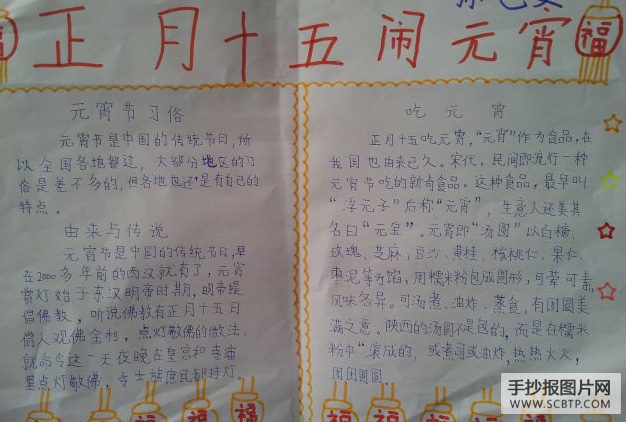 正月十五闹元宵
福
福
元宵节习俗
元宵节是中国的传统节日,所
以全国各地都过,大部分地区的习
俗是差不多的,但各地也还是有自己的
特点。
由来与传说
元宵节是中国的传统节日,早
在2000多年前的西汉就有了,元宵
赏灯始于东汉明帝时期,明帝提
倡佛教,听说佛教有正月十五日
僧人观佛舍利,点灯敬佛的做法,
就命令这一天夜晚在皇宫和寺庙
里点灯敬佛,令士族庶民都挂灯。
吃元宵
正月十五吃元宵,“元宵”作为食品,在
我国也由来已久。宋代,民间即流行一种
元宵节吃的新奇食品。这种食品,最早叫
“浮元子”后称“元宵”,生意人还美其
名曰“元宝”。元宵即“汤圆”以白糖、
玫瑰、芝麻、豆沙、黄桂、核桃仁、果仁、
枣泥等为馅,用糯米粉包成圆形,可荤可素,
风味各异。可汤煮、油炸、蒸食,有团圆美
满之意。陕西的汤圆不是包的,而是在糯米
粉中“滚”成的,或煮司或油炸,热热火火,
团团圆圆。
福
福
福
福
福
福
手抄报图片网
WWW.SCBTP.COM